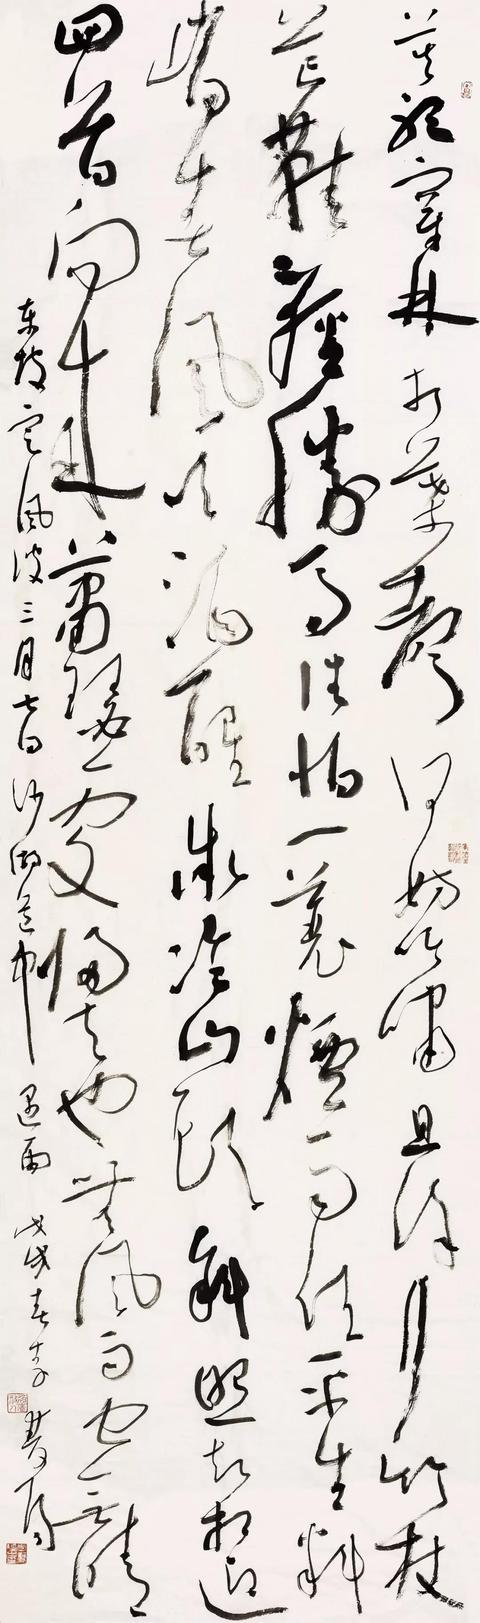 莫聽穿林打葉聲何妨吟嘯且徐行竹杖
芒鞋輕勝馬誰怕一蓑煙雨任平生料
峭春風吹酒醒微冷山頭斜照却相迎
回首向来蕭瑟處歸去也無風雨也無晴
东坡定風波三月七日沙湖道中遇雨 戊戌春李雙陽